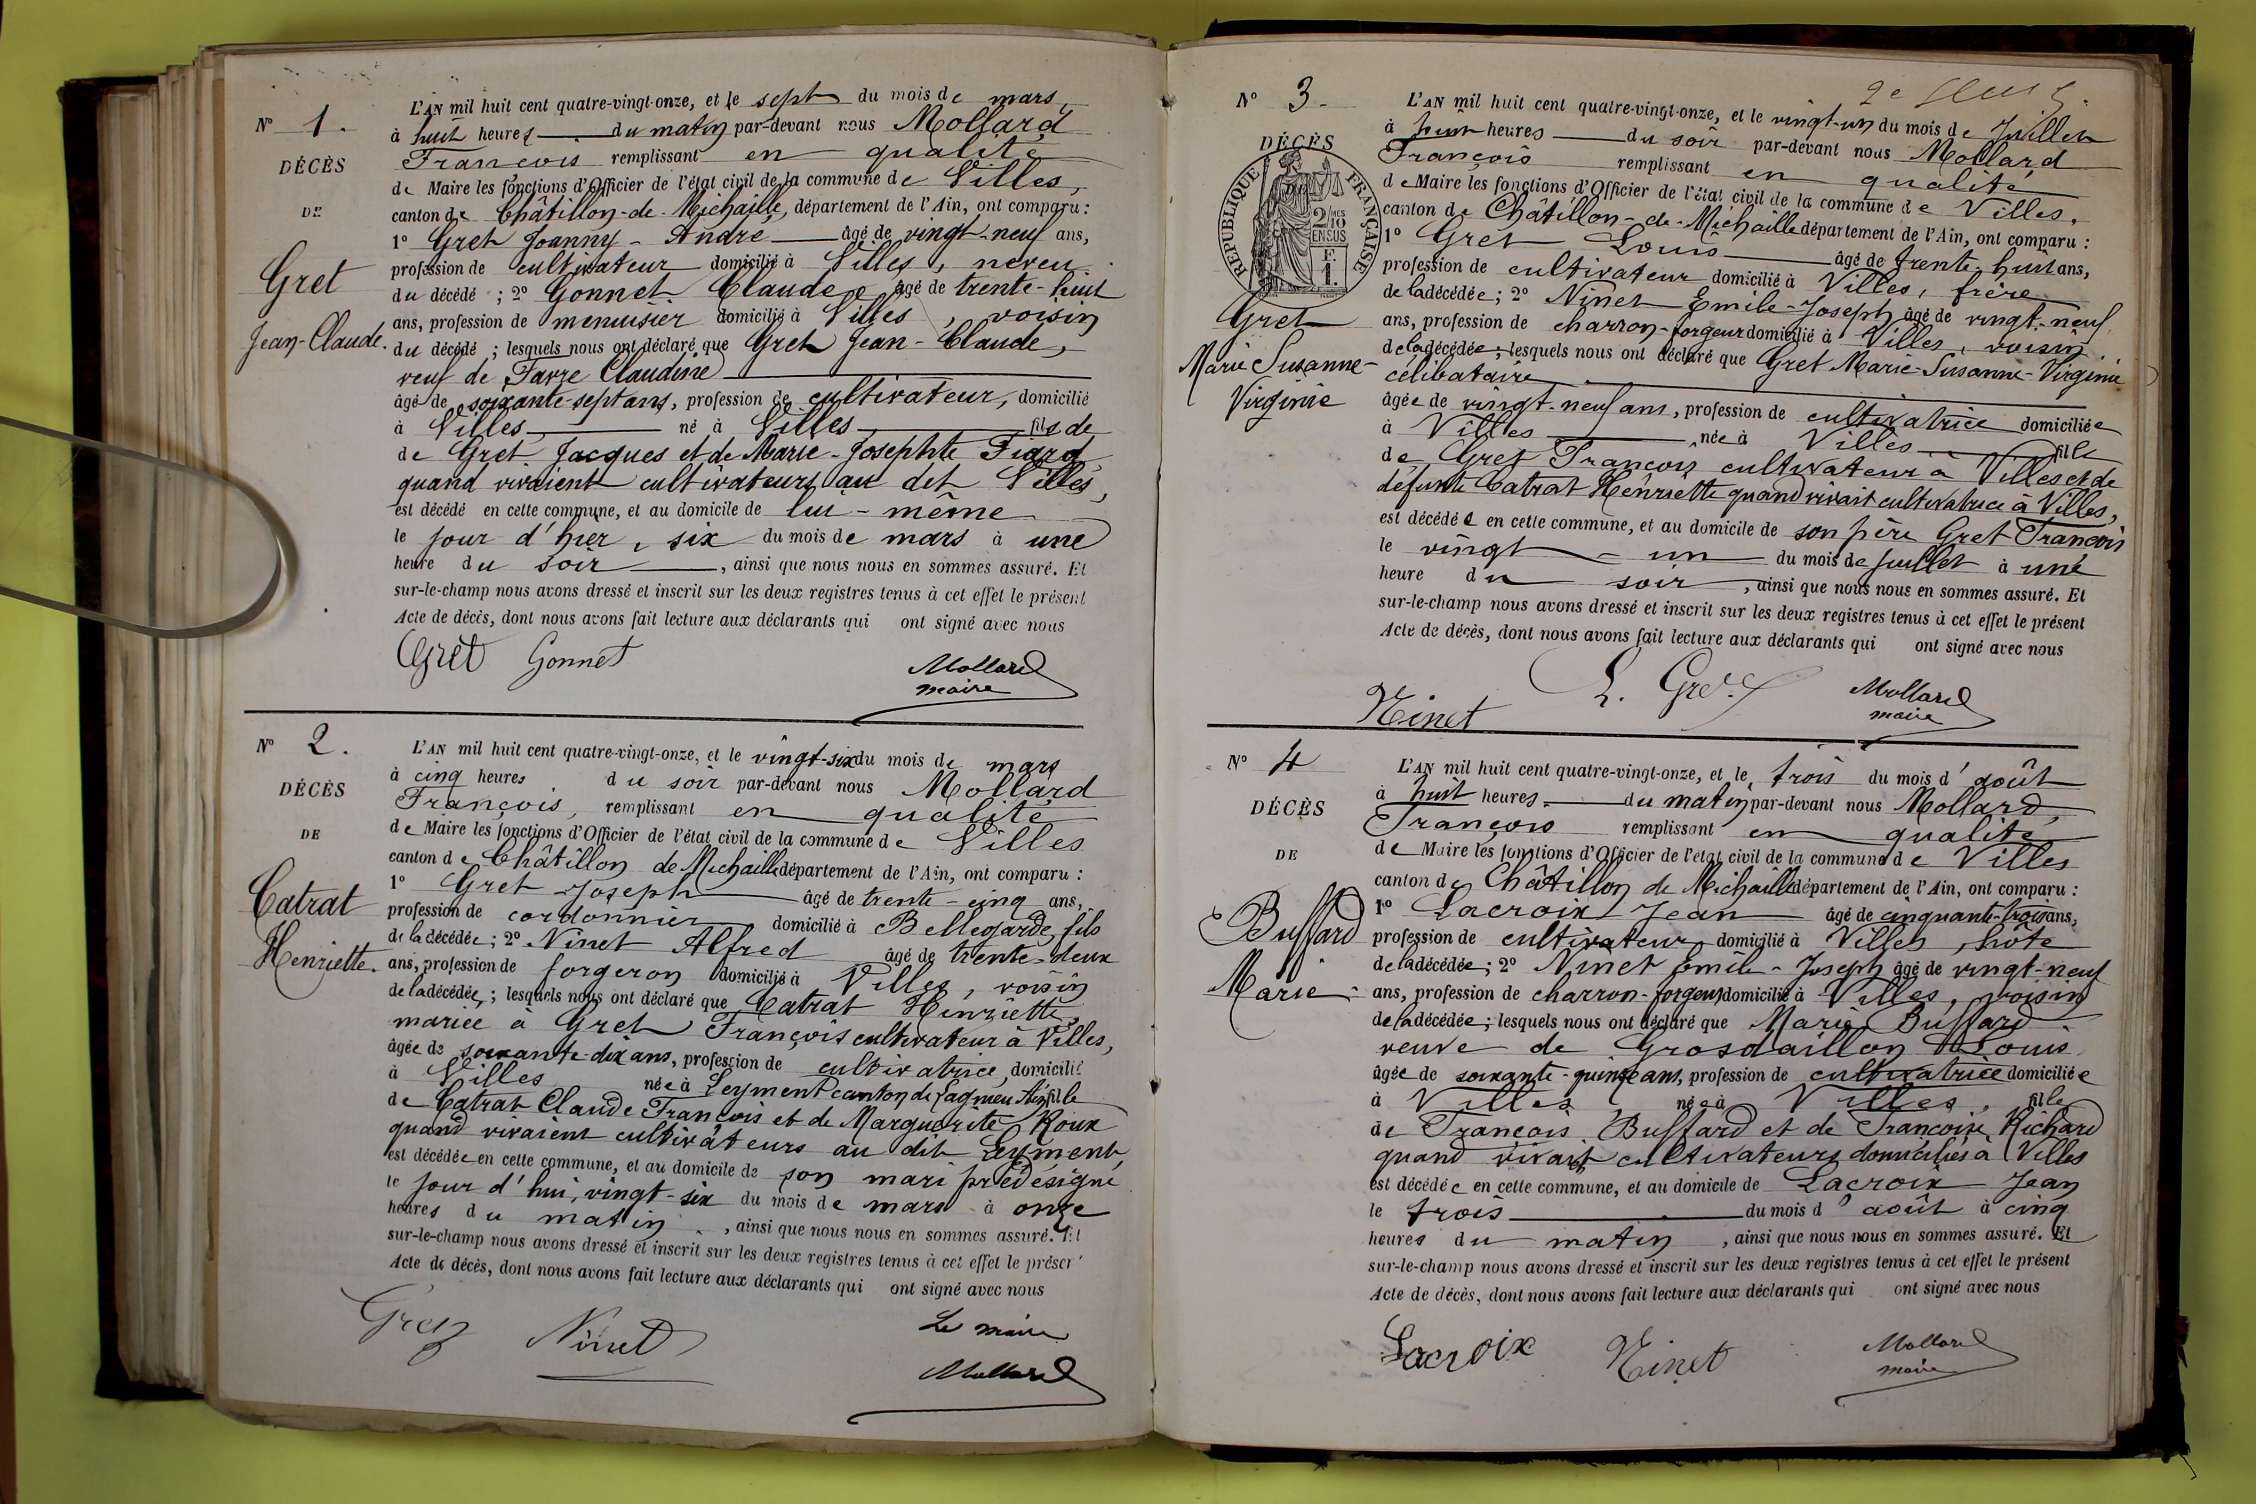 N° 1.
DÉCÈS
DE
Gret
Jean-Claude.
L'AN mil huit cent quatre-vingt-onze, et le sept du mois de mars,
à huit heures du matin par-devant nous Mollard
François remplissant en qualité
de Maire les fonctions d'Officier de l'état civil de la commune de Villes,
canton de Châtillon-de-Michaille, département de l'Ain, ont comparu :
1° Gret Joanny-André âgé de vingt-neuf ans,
profession de cultivateur domicilié à Villes, neveu
du décédé ; 2° Gonnet Claude âgé de trente-huit
ans, profession de menuisier domicilié à Villes, voisin
du décédé ; lesquels nous ont déclaré que Gret Jean-Claude,
veuf de Favre Claudine
âgé de soixante-sept ans, profession de cultivateur, domicilié
à Villes né à Villes fils de
de Gret Jacques et de Marie-Josephte Fiard
quand vivaient cultivateurs au dit Villes,
est décédé en cette commune, et au domicile de lui-même
le jour d'hier, six du mois de mars à une
heure du soir, ainsi que nous nous en sommes assuré. Et
sur-le-champ nous avons dressé et inscrit sur les deux registres tenus à cet effet le présent
Acte de décès, dont nous avons fait lecture aux déclarants qui ont signé avec nous
Gret Gonnet Mollard
maire
N° 2.
DÉCÈS
DE
Catrat
Henriette.
L'AN mil huit cent quatre-vingt-onze, et le vingt-six du mois de mars
à cinq heures du soir par-devant nous Mollard
François, remplissant en qualité
de Maire les fonctions d'Officier de l'état civil de la commune de Villes
canton de Châtillon de Michaille département de l'Ain, ont comparu :
1° Gret Joseph âgé de trente-cinq ans,
profession de cordonnier domicilié à Bellegarde, fils
de la décédée ; 2° Ninet Alfred âgé de trente-deux
ans, profession de forgeron domicilié à Villes, voisin
de la décédée ; lesquels nous ont déclaré que Catrat Henriette,
mariée à Gret François cultivateur à Villes,
âgée de soixante-dix ans, profession de cultivatrice, domicilié
à Villes née à Leyment canton de Lagnieu Ain fille
de Catrat Claude François et de Marguerite Roux
quand vivaient cultivateurs au dit Leyment,
est décédée en cette commune, et au domicile de son mari prédésigné
le jour d'hui, vingt-six du mois de mars à onze
heures du matin, ainsi que nous nous en sommes assuré. Et
sur-le-champ nous avons dressé et inscrit sur les deux registres tenus à cet effet le présent
Acte de décès, dont nous avons fait lecture aux déclarants qui ont signé avec nous
Gret Ninet Le maire
Mollard
N° 3.
DÉCÈS
RÉPUBLIQUE FRANÇAISE
2/10 EN SUS
F. 1.
Gret
Marie Susanne-
Virginie
L'AN mil huit cent quatre-vingt-onze, et le vingt-un du mois de Juillet
à huit heures du soir par-devant nous Mollard
François remplissant en qualité
de Maire les fonctions d'Officier de l'état civil de la commune de Villes,
canton de Châtillon-de-Michaille département de l'Ain, ont comparu :
1° Gret Louis âgé de trente-huit ans,
profession de cultivateur domicilié à Villes, frère
de la décédée ; 2° Ninet Emile-Joseph âgé de vingt-neuf
ans, profession de charron-forgeur domicilié à Villes, voisin
de la décédée ; lesquels nous ont déclaré que Gret Marie-Susanne-Virginie
célibataire
âgée de vingt-neuf ans, profession de cultivatrice domiciliée
à Villes née à Villes fille
de Gret François cultivateur à Villes et de
défunte Catrat Henriette quand vivait cultivatrice à Villes,
est décédée en cette commune, et au domicile de son père Gret François
le vingt-un du mois de Juillet à une
heure du soir, ainsi que nous nous en sommes assuré. Et
sur-le-champ nous avons dressé et inscrit sur les deux registres tenus à cet effet le présent
Acte de décès, dont nous avons fait lecture aux déclarants qui ont signé avec nous
Ninet L. Gret Mollard
maire
N° 4
DÉCÈS
DE
Buffard
Marie
L'AN mil huit cent quatre-vingt-onze, et le trois du mois d'août
à huit heures du matin par-devant nous Mollard,
François remplissant en qualité
de Maire les fonctions d'Officier de l'état civil de la commune de Villes
canton de Châtillon de Michaille département de l'Ain, ont comparu :
1° Lacroix Jean âgé de cinquante-trois ans,
profession de cultivateur domicilié à Villes, hôte
de la décédée ; 2° Ninet Emile-Joseph âgé de vingt-neuf
ans, profession de charron-forgeur domicilié à Villes, voisin
de la décédée ; lesquels nous ont déclaré que Marie Buffard
veuve de Grosdaillon Louis
âgée de soixante-quinze ans, profession de cultivatrice domiciliée
à Villes, née à Villes, fille
de François Buffard et de Françoise Richard
quand vivait cultivateurs domiciliés à Villes
est décédée en cette commune, et au domicile de Lacroix Jean
le trois du mois d'août à cinq
heures du matin, ainsi que nous nous en sommes assuré. Et
sur-le-champ nous avons dressé et inscrit sur les deux registres tenus à cet effet le présent
Acte de décès, dont nous avons fait lecture aux déclarants qui ont signé avec nous
Lacroix Ninet Mollard
maire